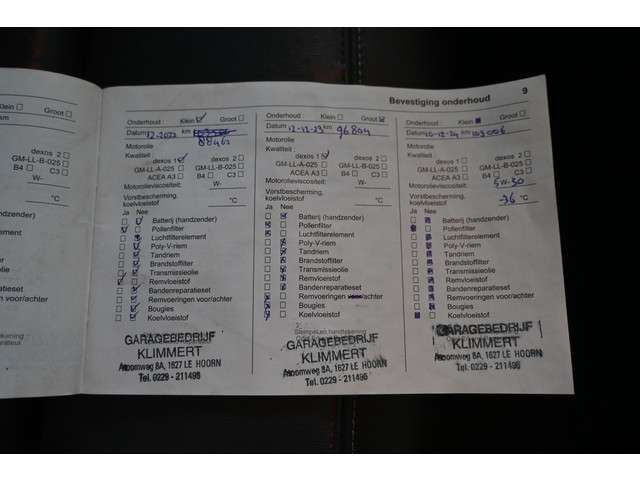 9
Bevestiging onderhoud
Klein Groot
Onderhoud : Klein Groot
Datum 12-2022 km
88462
Motorolie
Kwaliteit : dexos 1 dexos 2
GM-LL-A-025 GM-LL-B-025
ACEA A3 B4 C3
Motorolieviscositeit: W-
Vorstbescherming,
koelvloeistof °C
Ja Nee
Batterij (handzender)
Pollenfilter
Luchtfilterelement
Poly-V-riem
Tandriem
Brandstoffilter
Transmissieolie
Remvloeistof
Bandenreparatieset
Remvoeringen voor/achter
Bougies
Koelvloeistof
GARAGEBEDRIJF
KLIMMERT
Atoomweg 8A, 1627 LE HOORN
Tel. 0229 - 211496
Onderhoud : Klein Groot
Datum 12-12-23 km 96804
Motorolie
Kwaliteit : dexos 1 dexos 2
GM-LL-A-025 GM-LL-B-025
ACEA A3 B4 C3
Motorolieviscositeit: W-
Vorstbescherming,
koelvloeistof °C
Ja Nee
Batterij (handzender)
Pollenfilter
Luchtfilterelement
Poly-V-riem
Tandriem
Brandstoffilter
Transmissieolie
Remvloeistof
Bandenreparatieset
Remvoeringen voor/achter
Bougies
Koelvloeistof
GARAGEBEDRIJF
KLIMMERT
Atoomweg 8A, 1627 LE HOORN
Tel. 0229 - 211496
Onderhoud : Klein Groot
Datum 10-12-24 km 103006
Motorolie
Kwaliteit : dexos 1 dexos 2
GM-LL-A-025 GM-LL-B-025
ACEA A3 B4 C3
Motorolieviscositeit: W-
5W-30
Vorstbescherming,
koelvloeistof -36 °C
Ja Nee
Batterij (handzender)
Pollenfilter
Luchtfilterelement
Poly-V-riem
Tandriem
Brandstoffilter
Transmissieolie
Remvloeistof
Bandenreparatieset
Remvoeringen voor/achter
Bougies
Koelvloeistof
GARAGEBEDRIJF
KLIMMERT
Atoomweg 8A, 1627 LE HOORN
Tel. 0229 - 211496